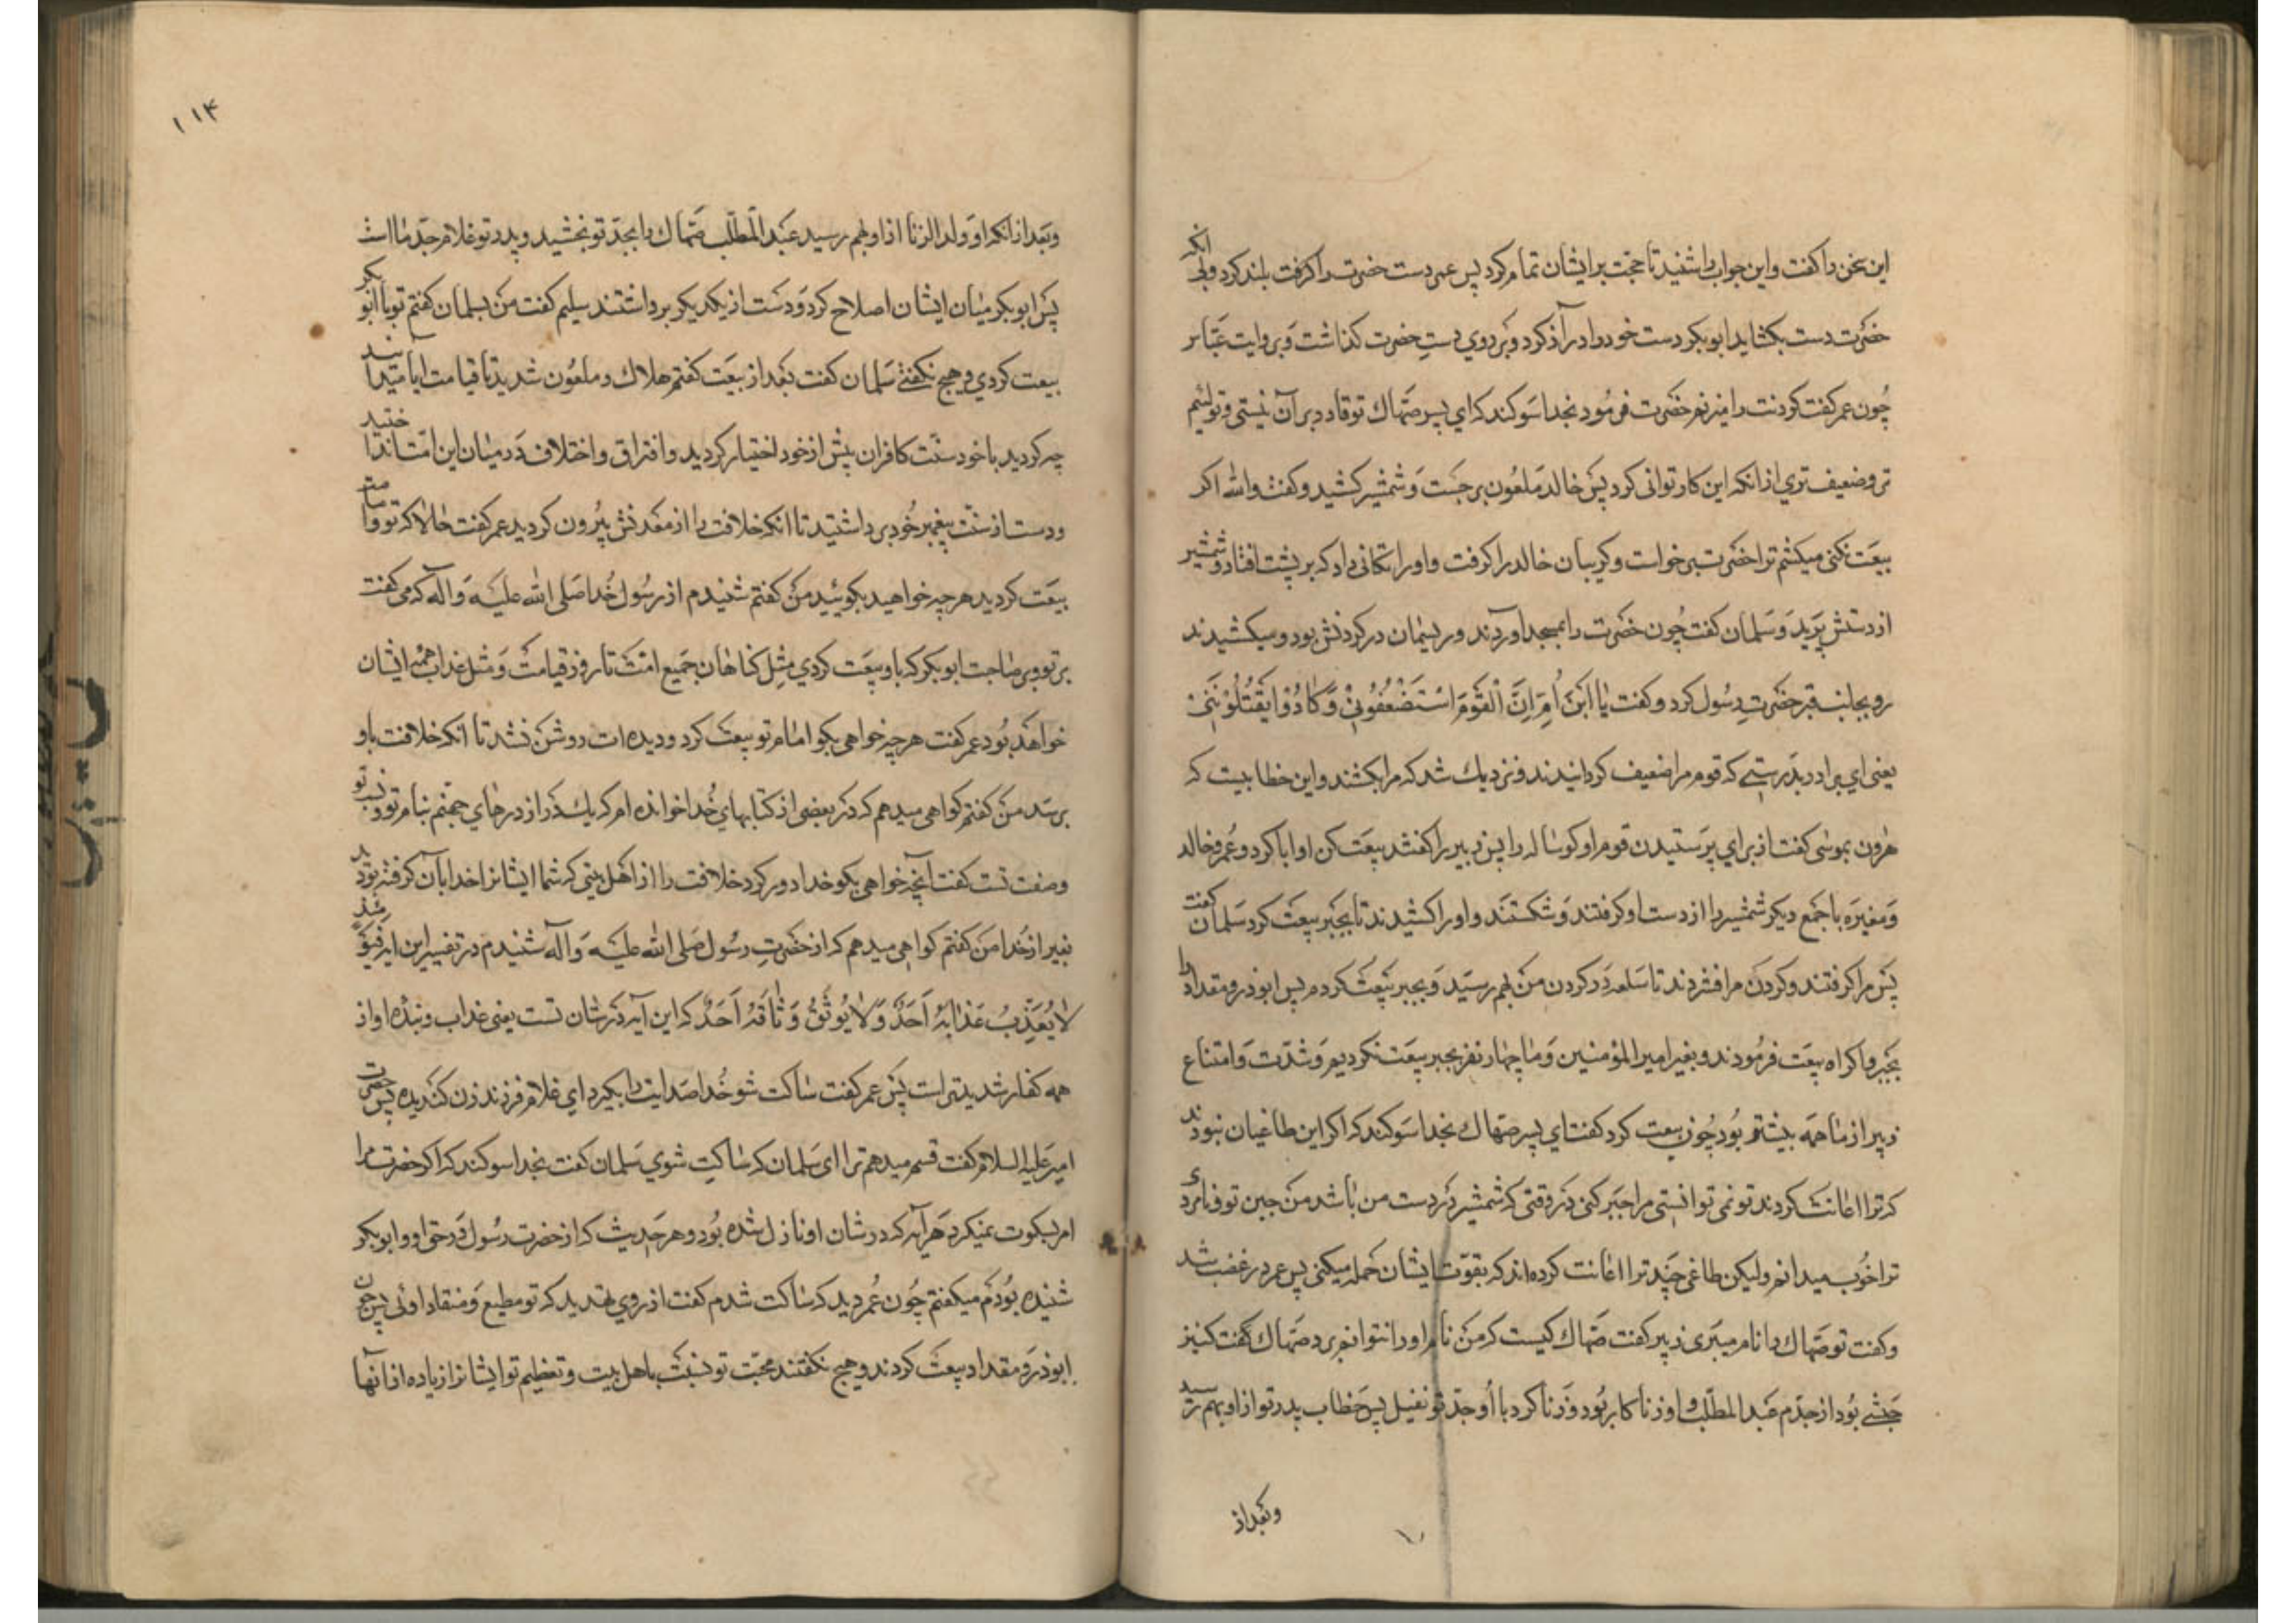 این سخن را گفت و این جواب را شنید تا حجت بر ایشان تمام کرد پس عمر دست حضرت را گرفت بلند کرد و بی انکه
حضرت دست بکشاید ابوبکر دست خود را دراز کرد و بر روی دست حضرت گذاشت و بروایت عباس
چون عمر گفت گردنت را میزنم حضرت فرمود بخدا سوگند که ای پسر صهاک تو قادر بر آن نیستی و تو لئیم
تر و ضعیف تری از انکه این کار توانی کرد پس خالد ملعون برجست و شمشیر کشید و گفت والله اکر
بیعت نکنی میکشم ترا حضرت برخواست و کریبان خالد را کرفت و او را تکانی داد که بر پشت افتاد و شمشیر
از دستش پرید و سلمان گفت چون حضرت را بمسجد آوردند و ریسمان در کردنش بود و میکشیدند
رو بجانب قبر حضرت رسول کرد و کفت یا ابْنَ اُمَّ اِنَّ الْقَوْمَ اسْتَضْعَفُونِی وَ کَادُوا یَقْتُلُونَنِی
یعنی ای برادر بدرستی که قوم مرا ضعیف کردانیدند و نزدیک شد که مرا بکشند و این خطابیست که
هرون بموسی کفت از برای پرستیدن قوم او کوساله را پس زبیر را کفتند بیعت کن او ابا کرد و عمر و خالد
و مغیره با جمع دیکر شمشیر را از دست او کرفتند و شکستند و او را کشیدند تا بجبر بیعت کرد سلمان کفت
پس مرا کرفتند و کردن مرا فشردند تا سلعه در کردن من بهم رسید و بجبر بیعت کردم پس ابوذر و مقداد را
بجبر و اکراه بیعت فرمودند و بغیر امیر المؤمنین و ما چهار نفر بجبر بیعت نکردیم و شدت و امتناع
زبیر از ما همه بیشتر بود چون بیعت کرد کفت ای پسر صهاک بخدا سوکند که اکر این طاغیان نبودند
که ترا اعانت کردند تو نمی توانستی مرا جبر کنی در وقتی که شمشیر در دست من باشد من جبن تو و نامردی
ترا خوب میدانم ولیکن طاغی چند ترا اعانت کرده اند که بقوت ایشان حمله میکنی پس عمر در غضب شد
و کفت تو صهاک را نام میبری زبیر کفت صهاک کیست که من نام او را نتوانم برد صهاک کفت کنیز
حبشیه بود از جدم عبد المطلب و او زناکار بود و زنا کرد با او جد تو نفیل پس خطاب پدر تو از او بهم رسید
و بعد از
۱۱۴
و بعد از انکه او ولد الزنا از او بهم رسید عبد المطلب صهاک را بجد تو بخشید و پدر تو غلام جد ما است
پس ابوبکر میان ایشان اصلاح کرد و دست از یکدیکر برداشتند سلیم کفت من بسلمان کفتم تو با ابوبکر
بیعت کردی و هیچ نکفتی سلمان کفت بعد از بیعت کفتم هلاک و ملعون شدید تا قیامت ایا میدانید
چه کردید با خود سنت کافران پیش از خود اختیار کردید و افتراق و اختلاف در میان این امت انداختید
و دست از سنت پیغمبر خود برداشتید تا انکه خلافت را از معدنش بیرون کردید عمر کفت حالا که تو و امامت
بیعت کردید هر چه خواهید بکوئید من کفتم شنیدم از رسول خدا صلی الله علیه و آله که می کفت
بر تو و بر صاحبت ابوبکر که با او بیعت کردی مثل کناهان جمیع امت تا روز قیامت و مثل عذاب همه ایشان
خواهد بود عمر کفت هر چه خواهی بکو امام تو بیعت کرد و دیده ات روشن نشد تا انکه خلافت باو
برسد من کفتم کواهی میدهم که در بعضی از کتابهای خدا خوانده ام که یک در از درهای جهنم بنام تو و نسب تو
وصفت تست کفت آنچه خواهی بکو خدا دور کرد خلافت را از اهل بیتی که شما ایشانرا خدایان کرفته بودید
بغیر از خدا من کفتم کواهی میدهم که از حضرت رسول صلی الله علیه و آله شنیدم در تفسیر این ایه فَیَوْمَئِذٍ
لا یُعَذِّبُ عَذَابَهُ اَحَدٌ وَ لا یُوثِقُ وَثَاقَهُ اَحَدٌ که این آیه در شان تست یعنی عذاب و بند او از
همه کفار شدیدتر است پس عمر کفت ساکت شو خدا صدایت را بکیرد ای غلام فرزند زن کندیده پس حضرت
امیر علیه السلام کفت قسم میدهم ترا ای سلمان که ساکت شوی سلمان کفت بخدا سوکند که اکر حضرت مرا
امر بسکوت نمیکرد هر آیه که در شان او نازل شده بود و هر حدیث که از حضرت رسول در حق او و ابوبکر
شنیده بودم میکفتم چون عمر دید که ساکت شدم کفت از روی تهدید که تو مطیع و منقاد اوئی پس چون
ابوذر و مقداد بیعت کردند و هیچ نکفتند محبت تو نسبت باهل بیت و تعظیم تو ایشانرا زیاده از آنها